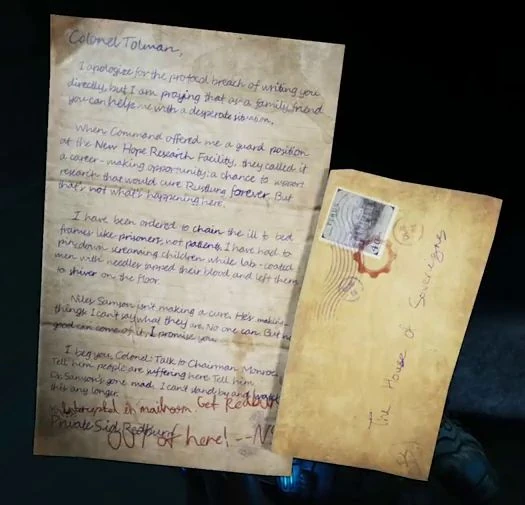 Colonel Tolman,
I apologize for the protocol breach of writing you
directly, but I am praying that as a family friend
you can help me with a desperate situation.
When Command offered me a guard position
at the New Hope Research Facility, they called it
a career-making opportunity: a chance to support
research that would cure Rustlung forever. But
that's not what's happening here.
I have been ordered to chain the ill to bed
frames like prisoners, not patients. I have had to
pin down screaming children while lab-coated
men with needles tapped their blood and left them
to shiver on the floor.
Niles Samson isn't making a cure. He's making
things I can't say what they are. No one can. But no
good can come of it, I promise you.
I beg you, Colonel: Talk to Chairman Monroe.
Tell him people are suffering here. Tell him
Dr. Samson's gone mad. I can't stand by and
this any longer.
Intercepted in mailroom. Get Redburn
Private Sid Redburn
out of here! --N
The House of Sovereigns